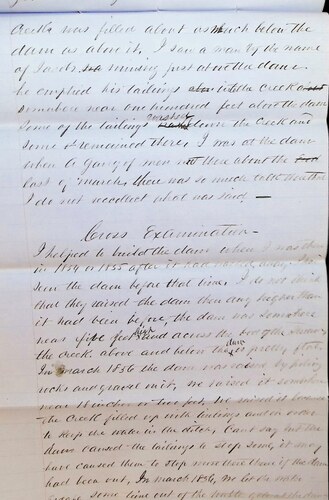 Creek was filled about as much below the
dam as above it. I saw a man by the name
of Jacobs mining just above the dam
he emptied his tailings into the creek
somewhere near one hundred feet above the dam
Some of the tailings washed down the Creek and
some remained there. I was at the dam
when a gang of men there about the
last of March, there was so much talk there that
I do not recollect what was said
Cross Examination
I helped to build the dam when I was there
in 1854 or 1855 after it had
seen the dam before that time. I do not think
that they raised the dam then any higher than
it had been before, the dam was somewhere
near five feet high across the bed of the
the creek above and below the dam is pretty flat.
In March 1856 the dam was raised by piling
rocks and gravel on it, we raised it somewhere
near 18 inches or two feet, we raised it because
the Creek filled up with tailings and in order
to keep the water in the ditch, Cant say but the
dam caused the tailings to stop some, it may
have caused them to stop more than if the dam
had been out, In March 1856, we let the water
some time out of the